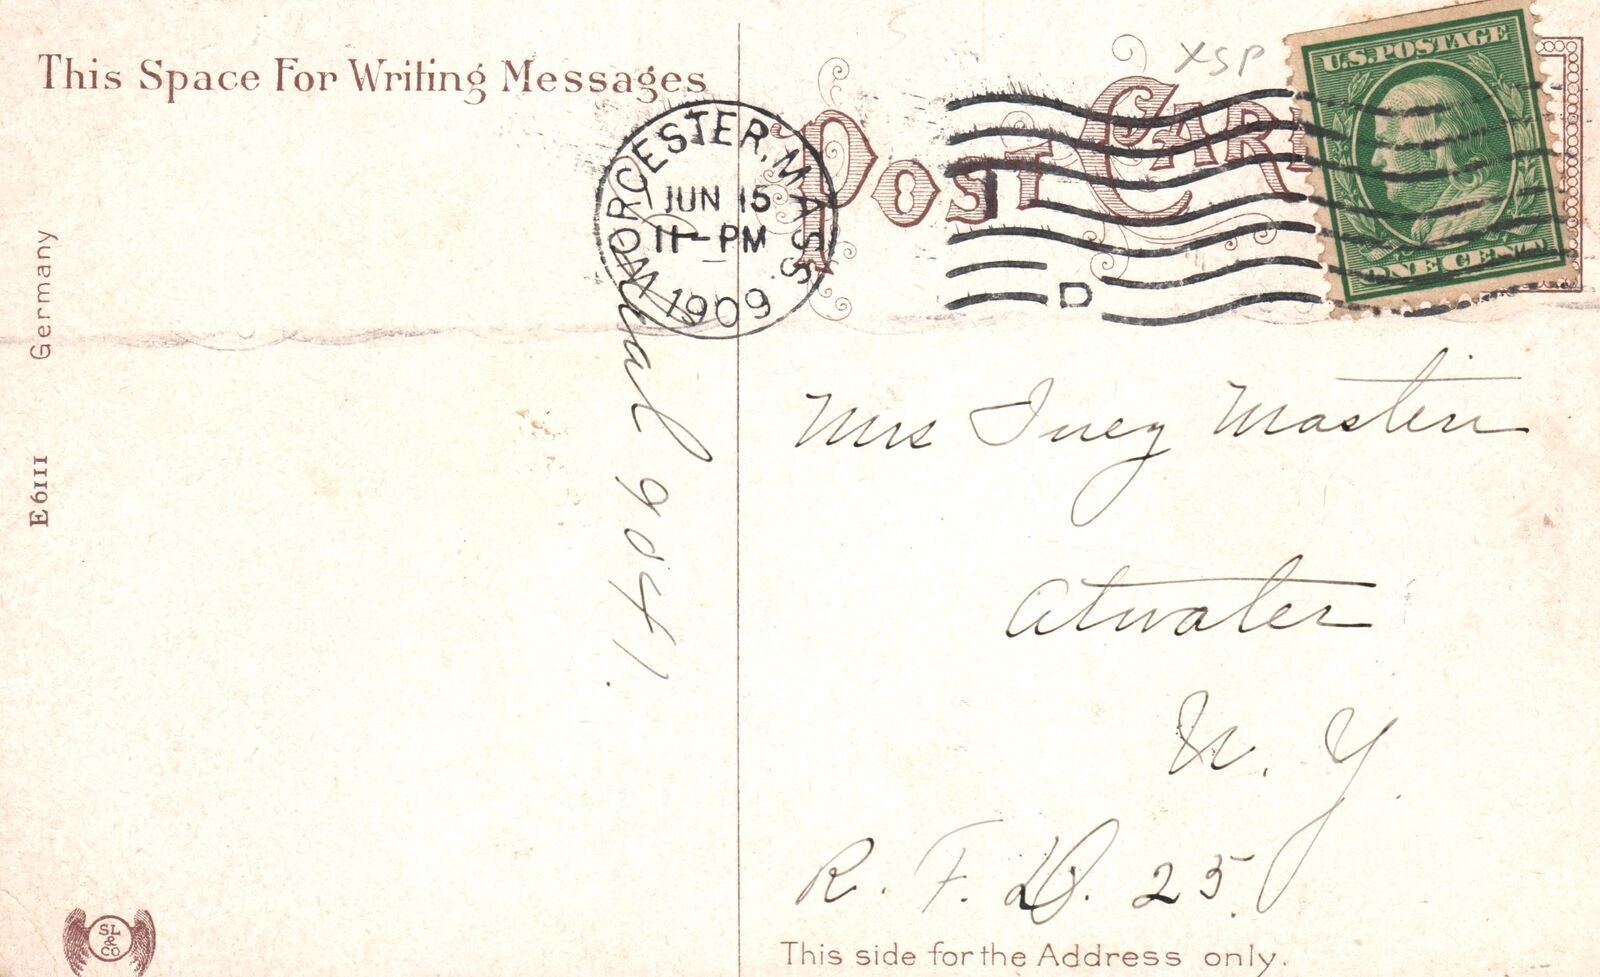 This Space For Writing Messages
POST CARD
XSP
U.S. POSTAGE
ONE CENT
WORCESTER, MASS.
JUN 15
11-PM
1909
D
Germany
E6111
9041.
Mrs Inez Masten
Atwater
N. Y.
R. F. D. 25.
SL
&
CO
This side for the Address only.